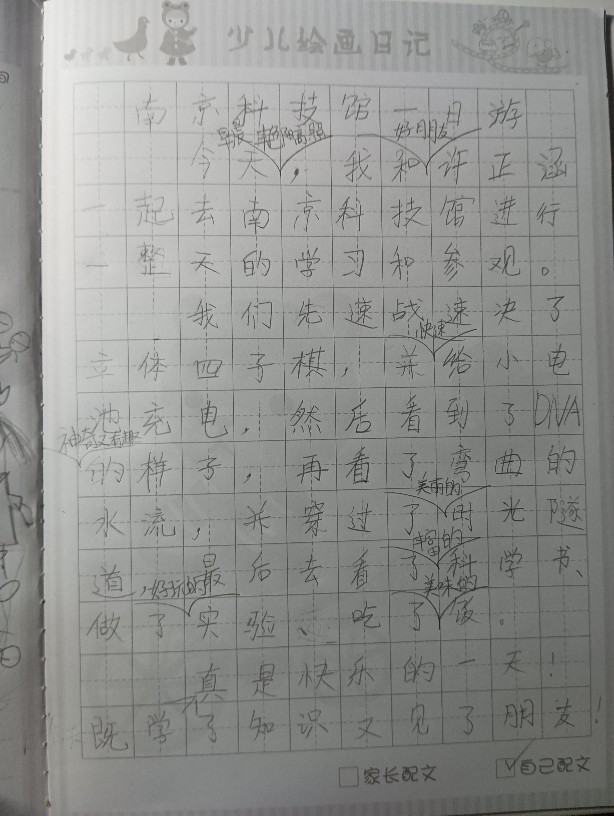 少儿绘画日记
南京科技馆一日游
早晨 艳阳高照 好朋友
今天,我和许正涵
一起去南京科技馆进行
一整天的学习和参观。
我们先速战速决了
快速
立体四子棋,并给小电
池充电,然后看到了DNA
神奇又有趣
的样子,再看了弯曲的
美丽的
水流,并穿过了时光隧
丰富的
道,最后去看了科学书、
好玩的 美味的
做了实验、吃了饭。
真是快乐的一天!
既学了知识又见了朋友!
家长配文 自己配文